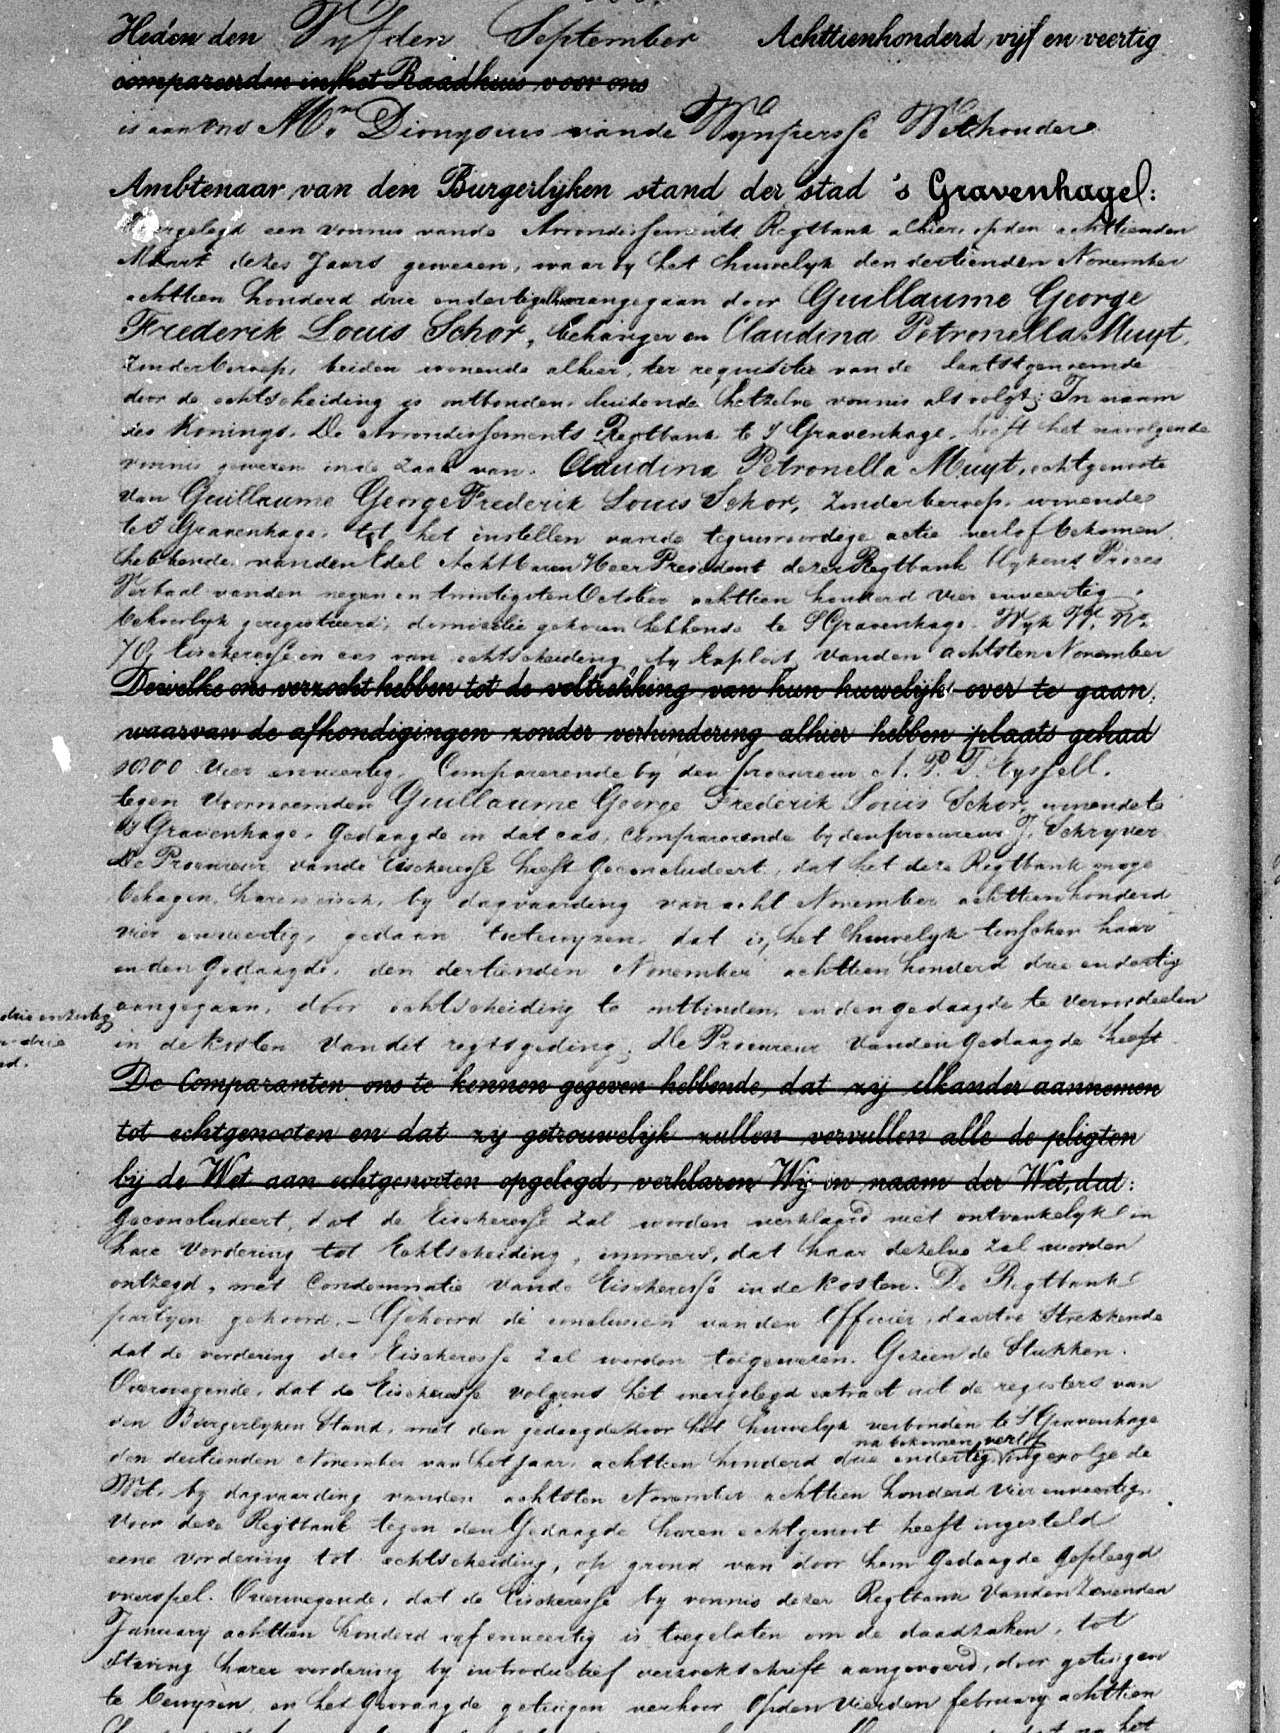 Heden den Vyfden September Achttienhonderd vijf en veertig
compareerden in het Raadhuis voor ons
is aan ons Mr. Dionysius vande Wynpersse Wethouder
Ambtenaar van den Burgerlijken stand der stad 's Gravenhage:
overgelegd een vonnis vande Arrondissements Regtbank alhier, op den achttienden
Maart dezes Jaars gewezen, waarby het huwelyk den dertienden November
achttien honderd drie en dertig alhier aangegaan door Guillaume George
Frederik Louis Schor, behanger en Claudina Petronella Muyt,
zonder beroep, beiden wonende alhier, ter requisitie van de laatstgenoemde
door de echtscheiding is ontbonden, luidende hetzelve vonnis als volgt; In naam
des Konings. De Arrondissements Regtbank te S Gravenhage, heeft het navolgende
vonnis gewezen in de zaak van Claudina Petronella Muyt, echtgenoote
van Guillaume George Frederik Louis Schor, zonder beroep, wonende
te S Gravenhage, tot het instellen van de tegenwoordige actie verlof bekomen
hebbende van den Edel Achtbaren Heer President dezer Regtbank blykens Proces
Verbaal van den negen en twintigsten October achttien honderd vier en veertig,
behoorlyk geregistreerd, domicilie gekozen hebbende te S Gravenhage. Wyk W. No.
70, Eischeresse in cas van echtscheiding by Exploit vanden achtsten November
Dewelke ons verzocht hebben tot de voltrekking van hun huwelijk over te gaan,
waarvan de afkondigingen zonder verhindering alhier hebben plaats gehad
1800 vier en veertig. Comparerende by den procureur A. P. T. Eyssell.
tegen Voornoemden Guillaume George Frederik Louis Schor, wonende te
S Gravenhage, Gedaagde in dat cas, comparerende by den procureur J. Schryver
De Procureur vande Eischeresse heeft geconcludeert, dat het deze Regtbank moge
behagen, haren eisch, by dagvaarding van acht November achttien honderd
vier en veertig, gedaan toetewyzen, dat is, het huwelyk tusschen haar
en den Gedaagde, den dertienden November achttien honderd drie en dertig
aangegaan, door echtscheiding te ontbinden, en den gedaagde te veroordeelen
in de kosten van dit regtsgeding; De Procureur vanden gedaagde heeft
De Comparanten ons te kennen gegeven hebbende, dat zij elkander aannemen
tot echtgenooten en dat zij getrouwelijk zullen vervullen alle de pligten
bij de Wet aan echtgenooten opgelegd, verklaren Wij in naam der Wet, dat:
geconcludeert, dat de Eischeresse zal worden verklaard niet ontvankelyk in
hare vordering tot Echtscheiding, immers, dat haar dezelve zal worden
ontzegd, met Condemnatie vande Eischeresse in de kosten. De Regtbank
partyen gehoord, – Gehoord de conclusien van den Officier, daartoe Strekkende
dat de vordering der Eischeresse zal worden toegewezen. Gezien de Stukken.
Overwegende, dat de Eischeresse volgens het overgelegd extract uit de registers van
den Burgerlyken Stand, met den gedaagde door het huwelyk verbonden te S Gravenhage
na bekomen verlof
den dertienden November van het jaar achttien honderd drie en dertig, ingevolge de
Wet, by dagvaarding vanden achtsten November achttien honderd vier en veertig,
voor deze Regtbank tegen den Gedaagde haren echtgenoot heeft ingesteld
eene vordering tot echtscheiding, op grond van door hem Gedaagde gepleegd
overspel. Overwegende, dat de Eischeresse by vonnis dezer Regtbank vanden Zevenden
January achttien honderd vyf en veertig is toegelaten om de daadzaken, tot
Staving harer vordering by introductief verzoekschrift aangevoerd, door getuigen
te bewyzen, en het gevraagde getuigen verhoor op den vierden february achttien